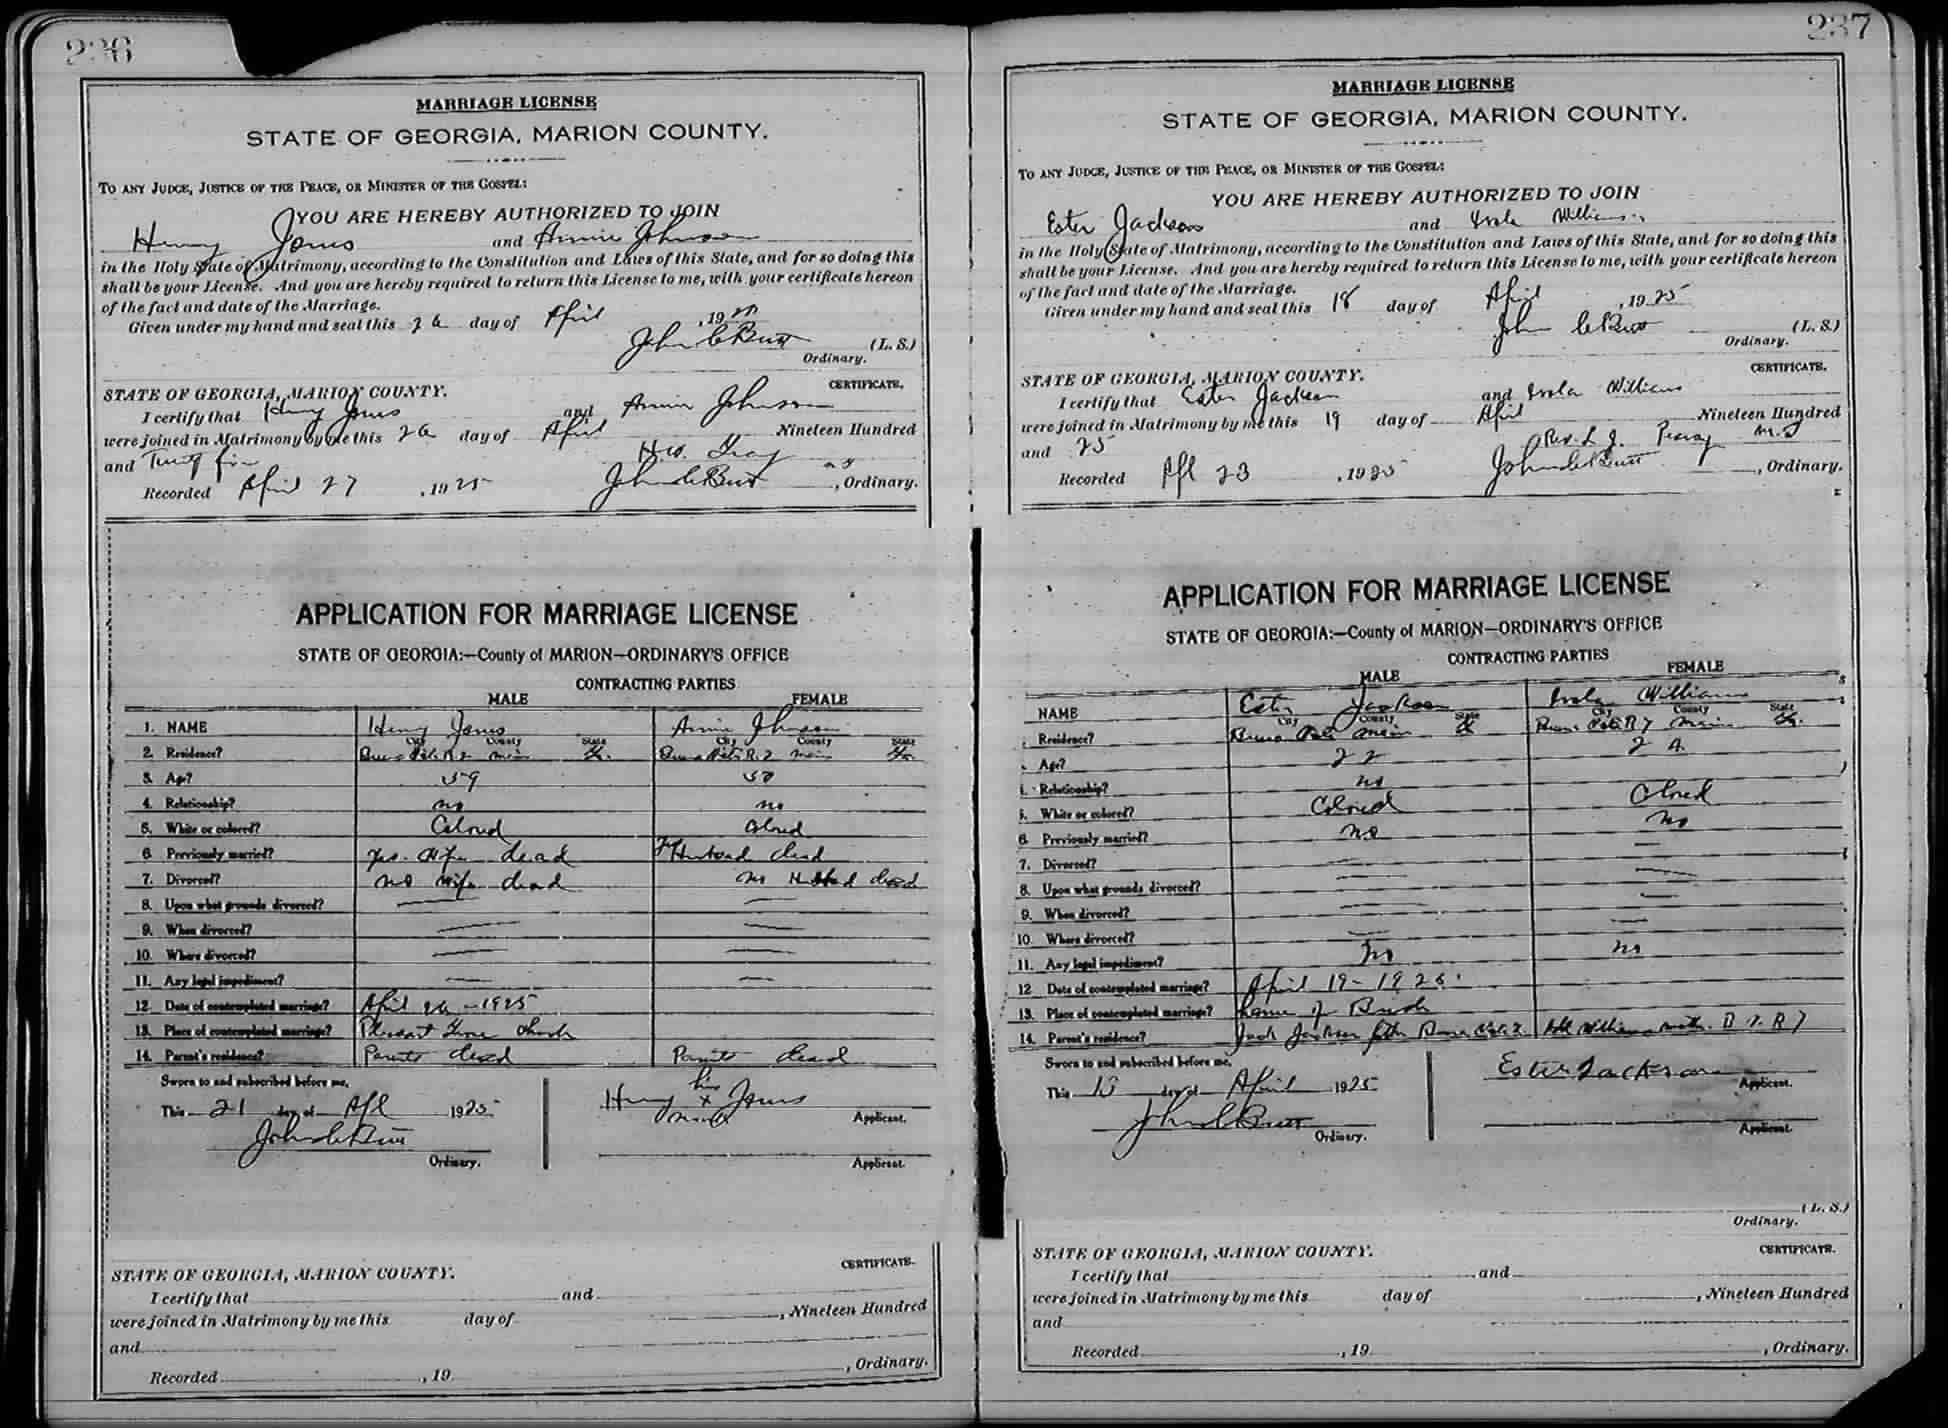 236
MARRIAGE LICENSE
STATE OF GEORGIA, MARION COUNTY.
TO ANY JUDGE, JUSTICE OF THE PEACE, OR MINISTER OF THE GOSPEL:
YOU ARE HEREBY AUTHORIZED TO JOIN
Henry Jones and Annie Johnson
in the Holy State of Matrimony, according to the Constitution and Laws of this State, and for so doing this
shall be your License. And you are hereby required to return this License to me, with your certificate hereon
of the fact and date of the Marriage.
Given under my hand and seal this day of April , 1925
John C Butt (L. S.)
Ordinary.
CERTIFICATE.
STATE OF GEORGIA, MARION COUNTY.
I certify that Henry Jones and Annie Johnson
were joined in Matrimony by me this day of April Nineteen Hundred
and
H.W.
Recorded April 27 , 1925 John C Butt , Ordinary.
APPLICATION FOR MARRIAGE LICENSE
STATE OF GEORGIA:—County of MARION—ORDINARY'S OFFICE
CONTRACTING PARTIES
MALE FEMALE
1. NAME Henry Jones Annie Johnson
City County State City County State
2. Residence? Buena Vista R. 2 Ga. Buena Vista R. 2 Ga.
3. Age? 59 50
4. Relationship? no no
5. White or colored? Colored Colored
6. Previously married? yes. Wife dead Husband dead
7. Divorced? no wife dead no Husband dead
8. Upon what grounds divorced? — —
9. When divorced? — —
10. Where divorced? — —
11. Any legal impediment? — —
12. Date of contemplated marriage? April 26 - 1925
13. Place of contemplated marriage? Church
14. Parent's residence? Parents dead Parents dead
Sworn to and subscribed before me,
This 21 day of Apl 1925
John C Butt
Ordinary.
his
Henry x Jones
mark Applicant.
Applicant.
CERTIFICATE.
STATE OF GEORGIA, MARION COUNTY.
I certify that and
were joined in Matrimony by me this day of , Nineteen Hundred
and
Recorded , 19 , Ordinary.
237
MARRIAGE LICENSE
STATE OF GEORGIA, MARION COUNTY.
TO ANY JUDGE, JUSTICE OF THE PEACE, OR MINISTER OF THE GOSPEL:
YOU ARE HEREBY AUTHORIZED TO JOIN
Ester Jackson and Williams
in the Holy State of Matrimony, according to the Constitution and Laws of this State, and for so doing this
shall be your License. And you are hereby required to return this License to me, with your certificate hereon
of the fact and date of the Marriage.
Given under my hand and seal this 18 day of April , 1925
John C Butt (L. S.)
Ordinary.
CERTIFICATE.
STATE OF GEORGIA, MARION COUNTY.
I certify that Ester Jackson and Williams
were joined in Matrimony by me this 19 day of April Nineteen Hundred
and 25 Rev. L. J.
Recorded Apl 23 , 1925 John C Butt , Ordinary.
APPLICATION FOR MARRIAGE LICENSE
STATE OF GEORGIA:—County of MARION—ORDINARY'S OFFICE
CONTRACTING PARTIES
MALE FEMALE
NAME Ester Jackson Williams
City County State City County State
Residence? Buena Vista Ga Buena Vista R 7 Ga.
Age? 22
Relationship? no
5. White or colored? Colored Colored
6. Previously married? no no
7. Divorced? — —
8. Upon what grounds divorced? — —
9. When divorced? — —
10. Where divorced? — —
11. Any legal impediment? no no
12. Date of contemplated marriage? April 19 - 1925.
13. Place of contemplated marriage? home of Bride
14. Parent's residence? Jack Jackson father Buena Vista Williams mother B V. R 7
Sworn to and subscribed before me,
This day of April 1925
John C Butt
Ordinary.
Ester Jackson
Applicant.
Applicant.
(L. S.)
Ordinary.
CERTIFICATE.
STATE OF GEORGIA, MARION COUNTY.
I certify that and
were joined in Matrimony by me this day of , Nineteen Hundred
and
Recorded , 19 , Ordinary.